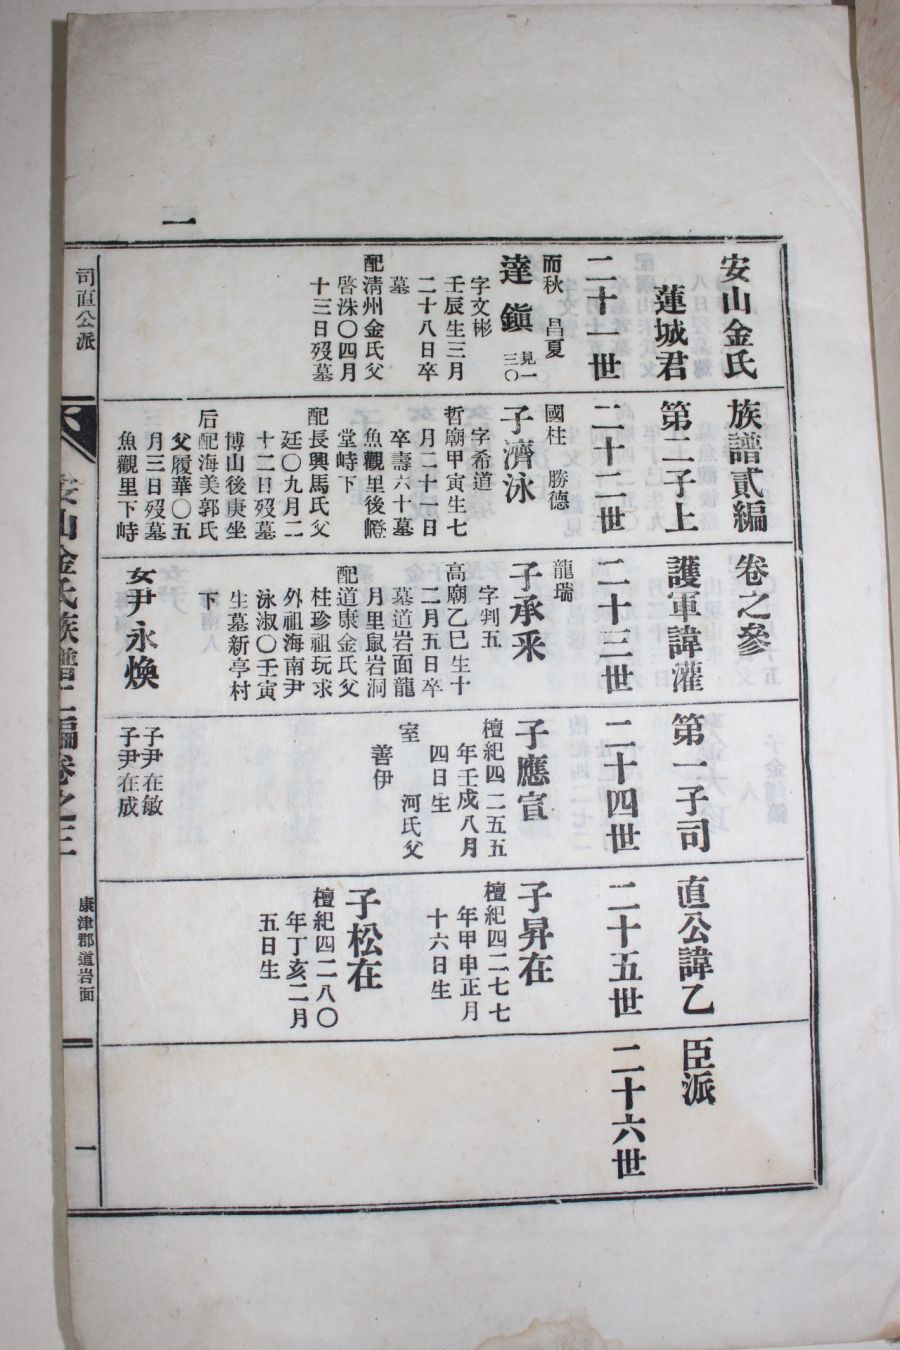 一
安山金氏族譜貳編卷之參
蓮城君第二子上護軍諱灌第一子司直公諱乙臣派
二十一世
二十二世
二十三世
二十四世
二十五世
二十六世
而秋 昌夏
達鎭 見一三〇
字文彬
壬辰生三月
二十八日卒
墓
配淸州金氏父
啓洙〇四月
十三日歿墓
國柱 勝德
子濟泳
字希道
哲廟甲寅生七
月二十日
卒壽六十墓
魚觀里後嶝
堂峙下
配長興馬氏父
廷〇九月二
十二日歿墓
博山後庚坐
后配海美郭氏
父履華〇五
月三日歿墓
魚觀里下峙
龍瑞
子承采
字判五
高廟乙巳生十
二月五日卒
墓道岩面龍
月里鼠岩洞
配道康金氏父
柱珍祖玩求
外祖海南尹
泳淑〇壬寅
生墓新亭村
下
女尹永煥
子應宣
檀紀四二五五
年壬戌八月
四日生
室 河氏父
善伊
子尹在敏
子尹在成
子昇在
檀紀四二七七
年甲申正月
十六日生
子松在
檀紀四二八〇
年丁亥二月
五日生
司直公派
安山金氏族譜二編卷之三
康津郡道岩面
一